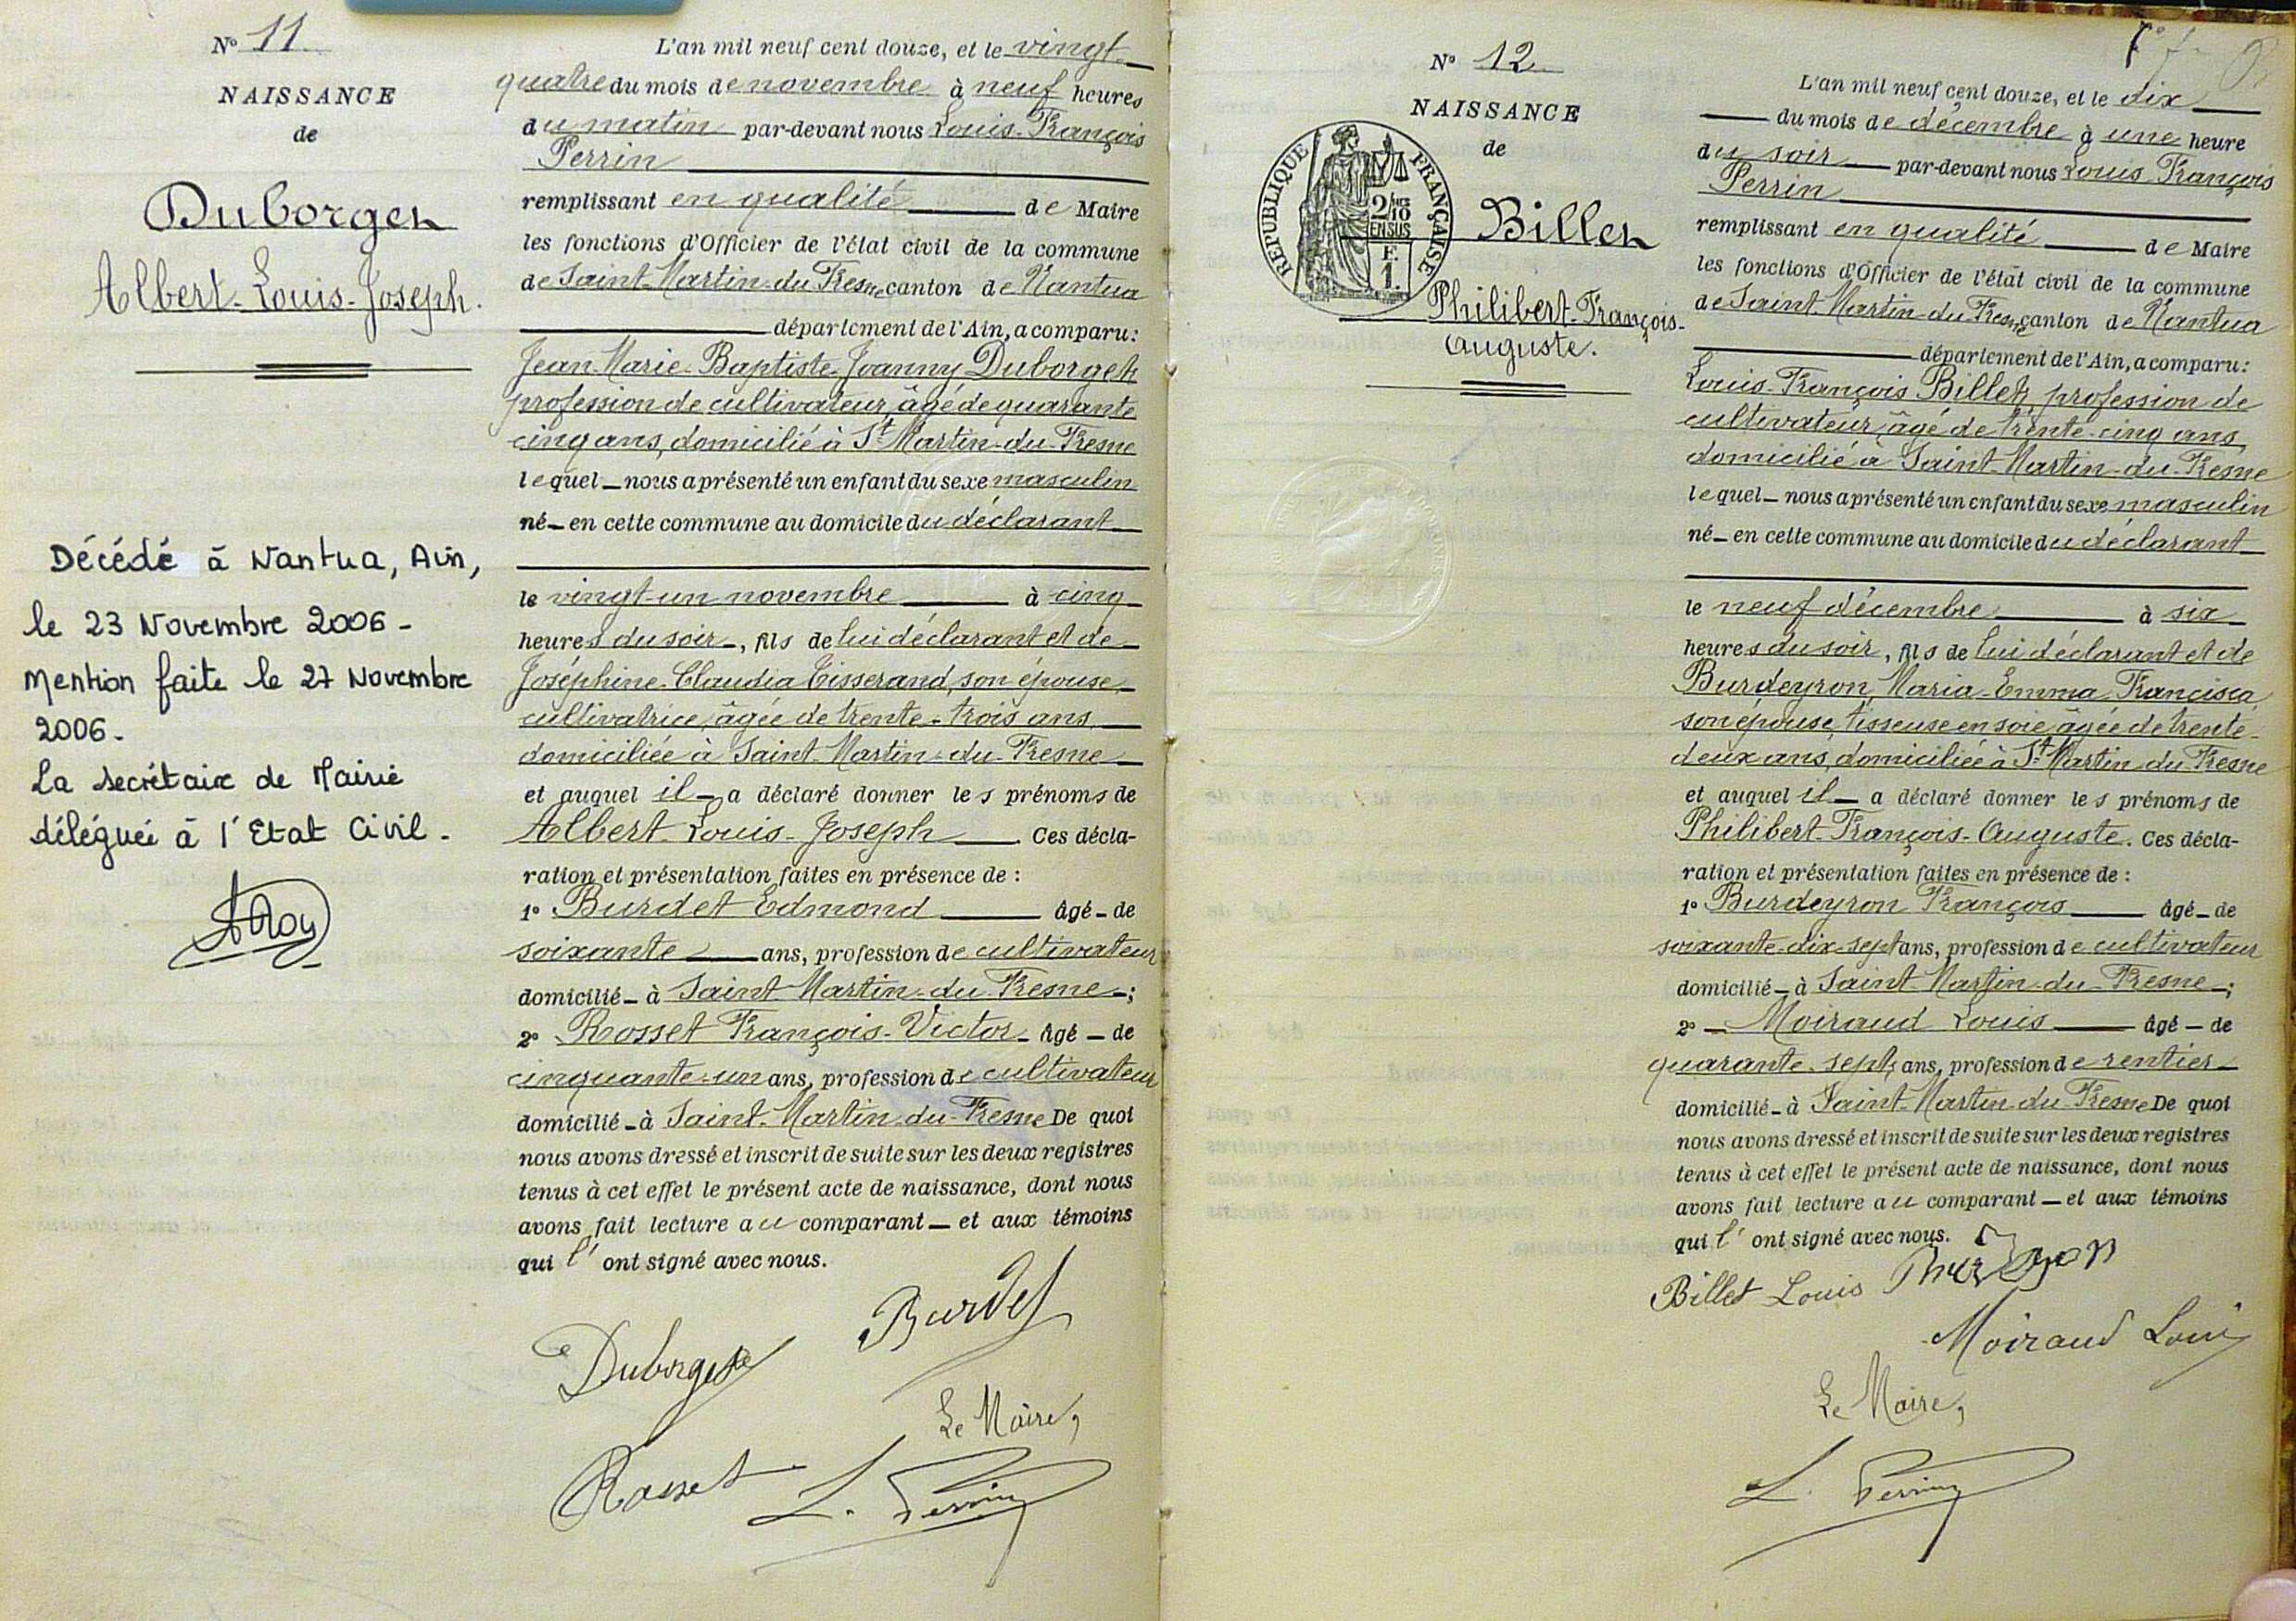 N° 11
NAISSANCE
de
Duborget
Albert-Louis-Joseph.
Décédé à Nantua, Ain,
le 23 Novembre 2006 -
Mention faite le 27 Novembre
2006 -
La secrétaire de Mairie
déléguée à l'Etat Civil -
L'an mil neuf cent douze, et le vingt-
quatre du mois de novembre à neuf heures
du matin par-devant nous Louis-François
Perrin
remplissant en qualité de Maire
les fonctions d'Officier de l'état civil de la commune
de Saint-Martin-du-Fresne canton de Nantua
département de l'Ain, a comparu:
Jean-Marie-Baptiste-Joanny Duborget
profession de cultivateur, âgé de quarante
cinq ans, domicilié à St Martin-du-Fresne
lequel nous a présenté un enfant du sexe masculin
né en cette commune au domicile du déclarant
le vingt-un novembre à cinq
heures du soir, fils de lui déclarant et de
Joséphine-Claudia Tisserand, son épouse,
cultivatrice, âgée de trente-trois ans,
domiciliée à Saint-Martin-du-Fresne
et auquel il a déclaré donner les prénoms de
Albert-Louis-Joseph. Ces décla-
ration et présentation faites en présence de :
1° Burdet Edmond âgé de
soixante ans, profession de cultivateur
domicilié à Saint-Martin-du-Fresne;
2° Rosset François-Victor âgé de
cinquante-un ans, profession de cultivateur
domicilié à Saint-Martin-du-Fresne De quoi
nous avons dressé et inscrit de suite sur les deux registres
tenus à cet effet le présent acte de naissance, dont nous
avons fait lecture au comparant et aux témoins
qui l'ont signé avec nous.
Burdet
Duborget
Le Maire,
Rosset L. Perrin
N° 12
NAISSANCE
de
REPUBLIQUE FRANÇAISE
2/10
EN SUS
F.
1.
Billet
Philibert-François-
Auguste.
L'an mil neuf cent douze, et le dix
du mois de décembre à une heure
du soir par-devant nous Louis-François
Perrin
remplissant en qualité de Maire
les fonctions d'Officier de l'état civil de la commune
de Saint-Martin-du-Fresne canton de Nantua
département de l'Ain, a comparu:
Louis-François Billet, profession de
cultivateur, âgé de trente-cinq ans,
domicilié à Saint-Martin-du-Fresne
lequel nous a présenté un enfant du sexe masculin
né en cette commune au domicile du déclarant
le neuf décembre à six
heures du soir, fils de lui déclarant et de
Burdeyron, Maria-Emma-Francisca,
son épouse, tisseuse en soie, âgée de trente-
deux ans, domiciliée à St Martin du Fresne
et auquel il a déclaré donner les prénoms de
Philibert-François-Auguste. Ces décla-
ration et présentation faites en présence de :
1° Burdeyron François âgé de
soixante-dix-sept ans, profession de cultivateur
domicilié à Saint-Martin-du-Fresne;
2° Moiraud Louis âgé de
quarante-sept ans, profession de rentier
domicilié à Saint-Martin-du-Fresne De quoi
nous avons dressé et inscrit de suite sur les deux registres
tenus à cet effet le présent acte de naissance, dont nous
avons fait lecture au comparant et aux témoins
qui l'ont signé avec nous.
Billet Louis
Moiraud Louis
Le Maire,
L. Perrin